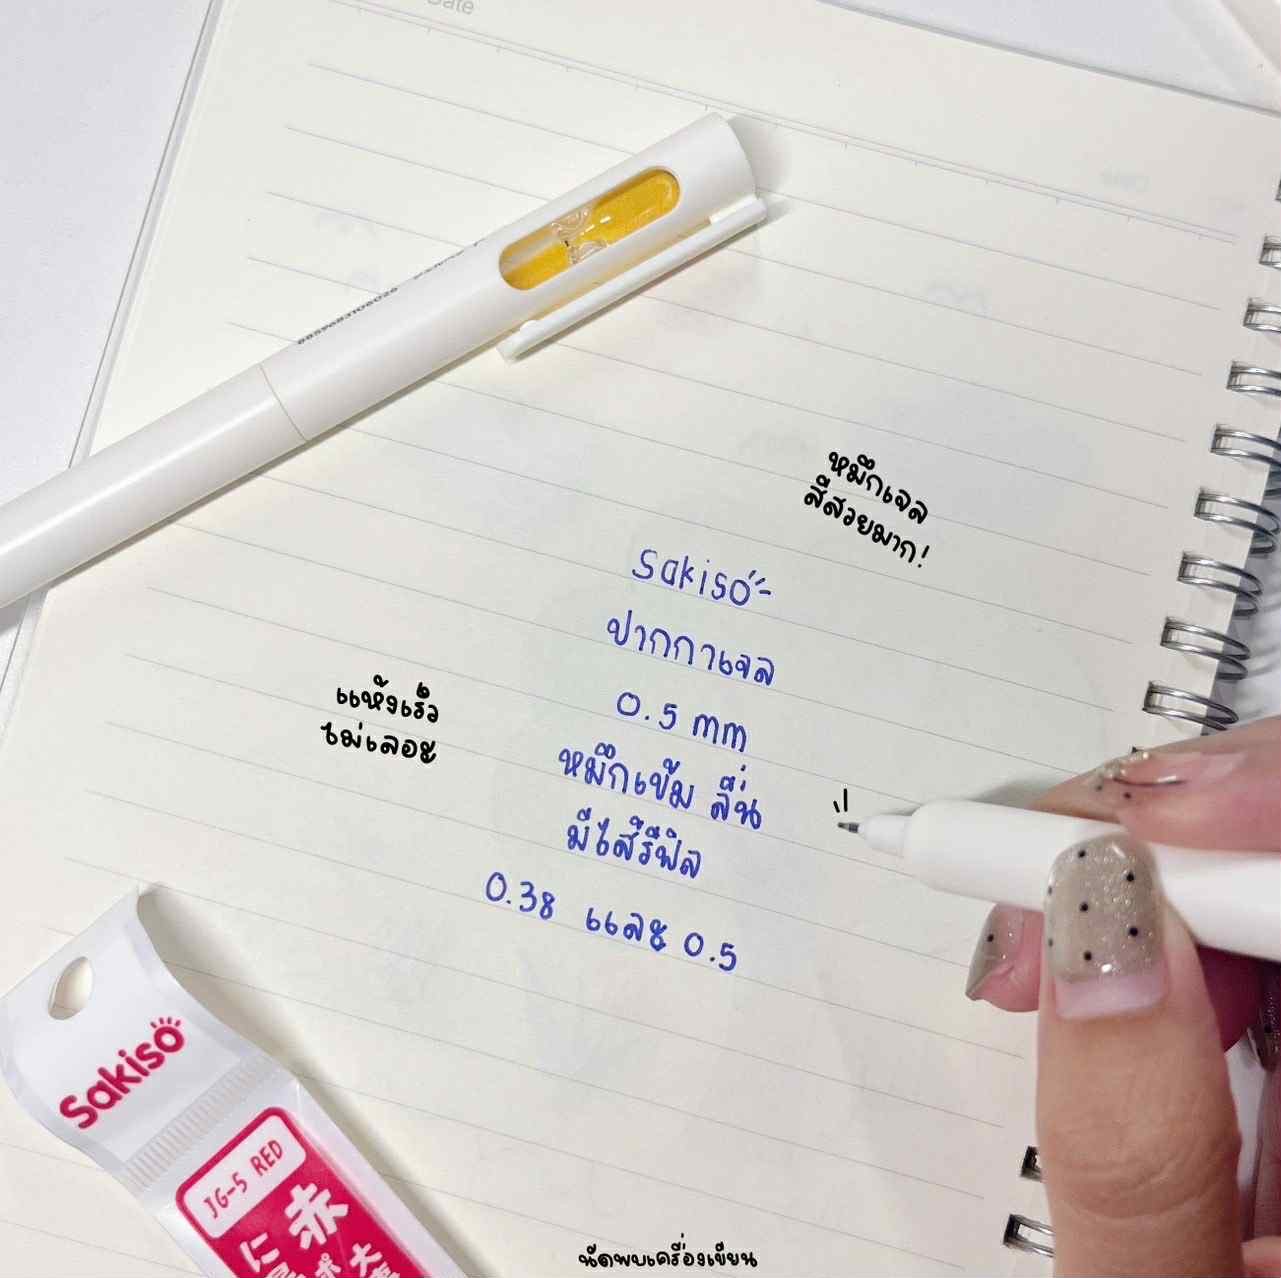 Date
หมึกเจล
สีสวยมาก!
Sakiso
ปากกาเจล
0.5 mm
หมึกเข้ม ลื่น
มีไส้รีฟิล
0.38 และ 0.5
แห้งเร็ว
ไม่เลอะ
Sakiso
JG-5 RED
赤
に
大
นัดพบเครื่องเขียน